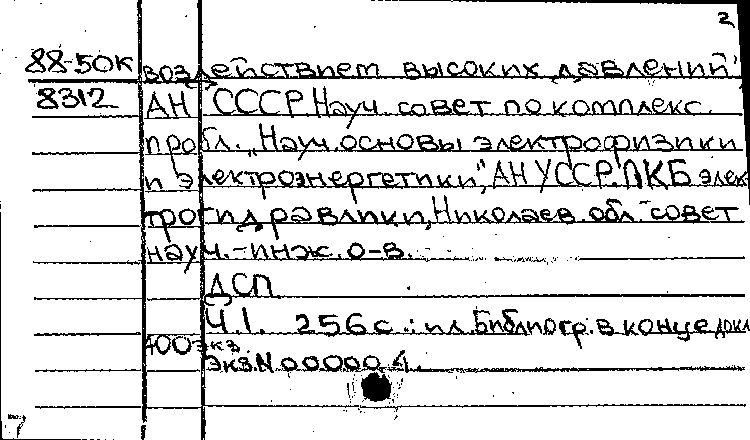 2
88-50к воздействием высоких давлений"
8312 АН СССР. Науч. совет по комплекс.
пробл. „Науч. основы электрофизики
и электроэнергетики", АН УССР. ПКБ элек-
трогидравлики, Николаев. обл. совет
науч.-инж. о-в.
ДСП
Ч.1. 256 с.: ил. Библиогр. в конце докл
400 экз
Экз. N 000004.